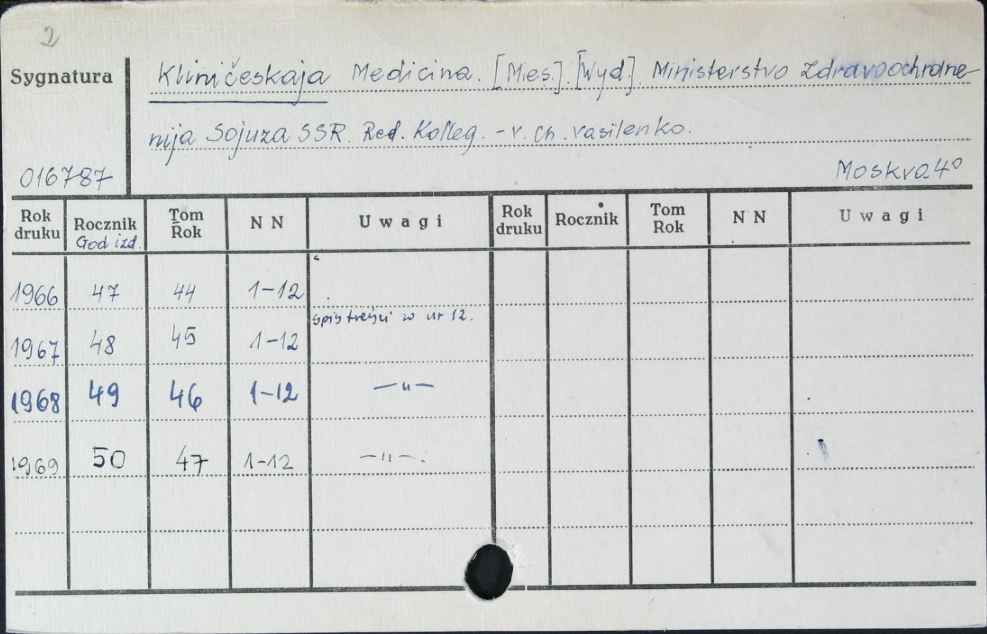 2
Sygnatura
Kliničeskaja Medicina. [Mies.]. [Wyd.] Ministerstvo Zdravoochrane-
nija Sojuza SSR. Red. Kolleg. - V. Ch. Vasilenko.
016787
Moskva 4°
Rok druku Rocznik God izd. Tom Rok N N Uwagi Rok druku Rocznik Tom Rok N N Uwagi
1966 47 44 1-12
Spis treści w nr 12.
1967 48 45 1-12
1968 49 46 1-12 —"—
1969 50 47 1-12 —"—.